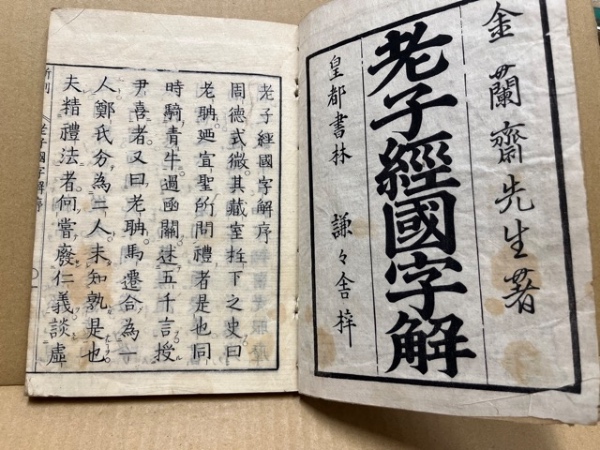 金蘭齋先生著
老子經國字解
皇都書林　謙々舍梓
老子經國字解序
周德式微其藏室柱下之史曰
老聃廼宣聖所問禮者是也同
時騎青牛過函關述五千言授
尹喜者又曰老聃馬遷合為一
人鄭氏分為二人未知孰是也
夫精禮法者何嘗廢仁義談虛
老子國字解序